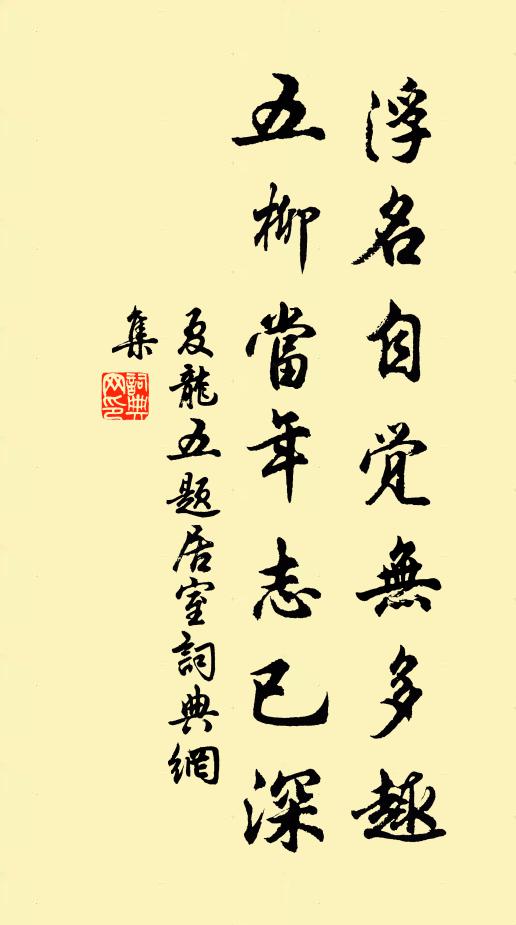 浮名自觉無多趣
五柳當年志已深
夏龍五题居室詞典網
集
詞典
网印